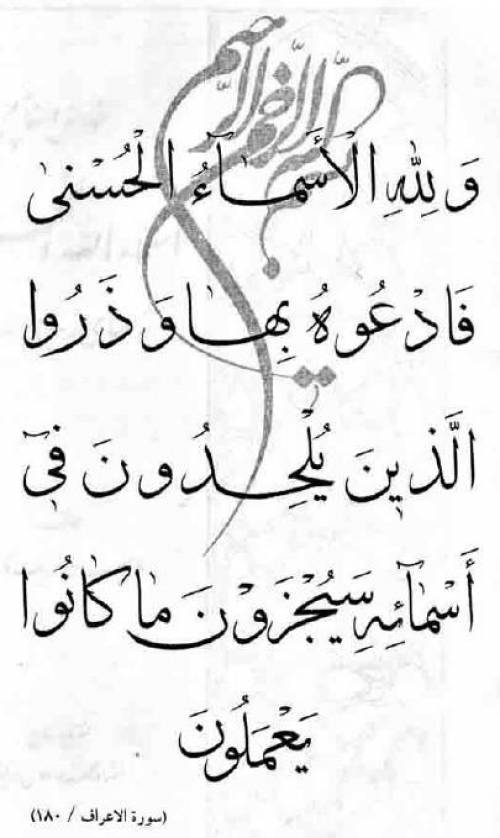 بسم الله الرحمن الرحيم
وَلِلّٰهِ الْأَسْمَآءُ الْحُسْنىٰ
فَادْعُوهُ بِهٰا وَ ذَرُوا
الَّذينَ يُلْحِدُونَ فىٓ
أَسْمٰآئِهِ سَيُجْزَوْنَ مٰا كٰانُوا
يَعْمَلُونَ
(سورة الاعراف / ١٨٠)